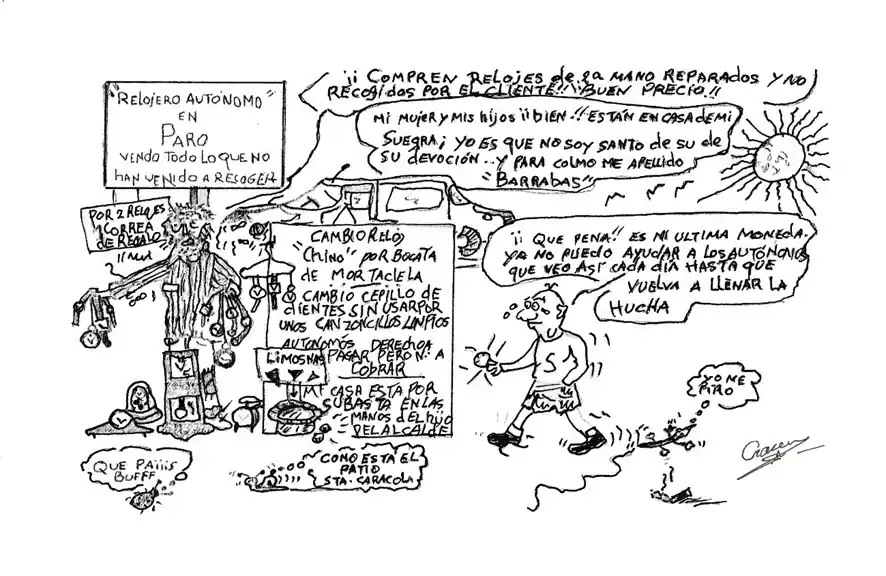 "RELOJERO AUTÓNOMO"
EN
PARO
VENDO TODO LO QUE NO
HAN VENIDO A RECOGER
¡¡ COMPREN RELOJES de 2ª MANO REPARADOS Y NO
RECOGIDOS POR EL CLIENTE!! ¡BUEN PRECIO!!
MI MUJER Y MIS HIJOS ¡¡BIEN!! ESTÁN EN CASA DE MI
SUEGRA; YO ES QUE NO SOY SANTO DE SU DE
SU DEVOCIÓN .. Y PARA COLMO ME APELLIDO
"BARRABAS"
POR 2 RELOJES
1 CORREA
DE REGALO
CAMBIO RELOJ
"CHINO" POR BOGATA
DE MORTACIELA
CAMBIO CEPILLO DE
CLIENTES SIN USAR POR
UNOS CANZONCILLOS LIMPIOS
AUTONOMÓS DERECHO A
PAGAR PERO NO A
COBRAR
MI CASA ESTA POR
SUBASTA EN LAS
MANOS DEL HIJO
DEL ALCALDE
LIMOSNAS
¡¡ QUE PENA!! ES MI ULTIMA MONEDA.
YA NO PUEDO AYUDAR A LOS AUTÓNOMOS
QUE VEO ASÍ CADA DÍA HASTA QUE
VUELVA A LLENAR LA
HUCHA
S
YO ME
PIRO
QUE PAIIIS
BUFFF
COMO ESTÁ EL
PATIO
STA. CARACOLA